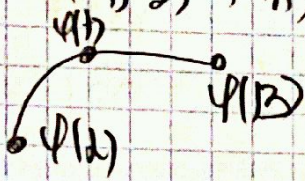 φ(t)
φ(β)
φ(α)